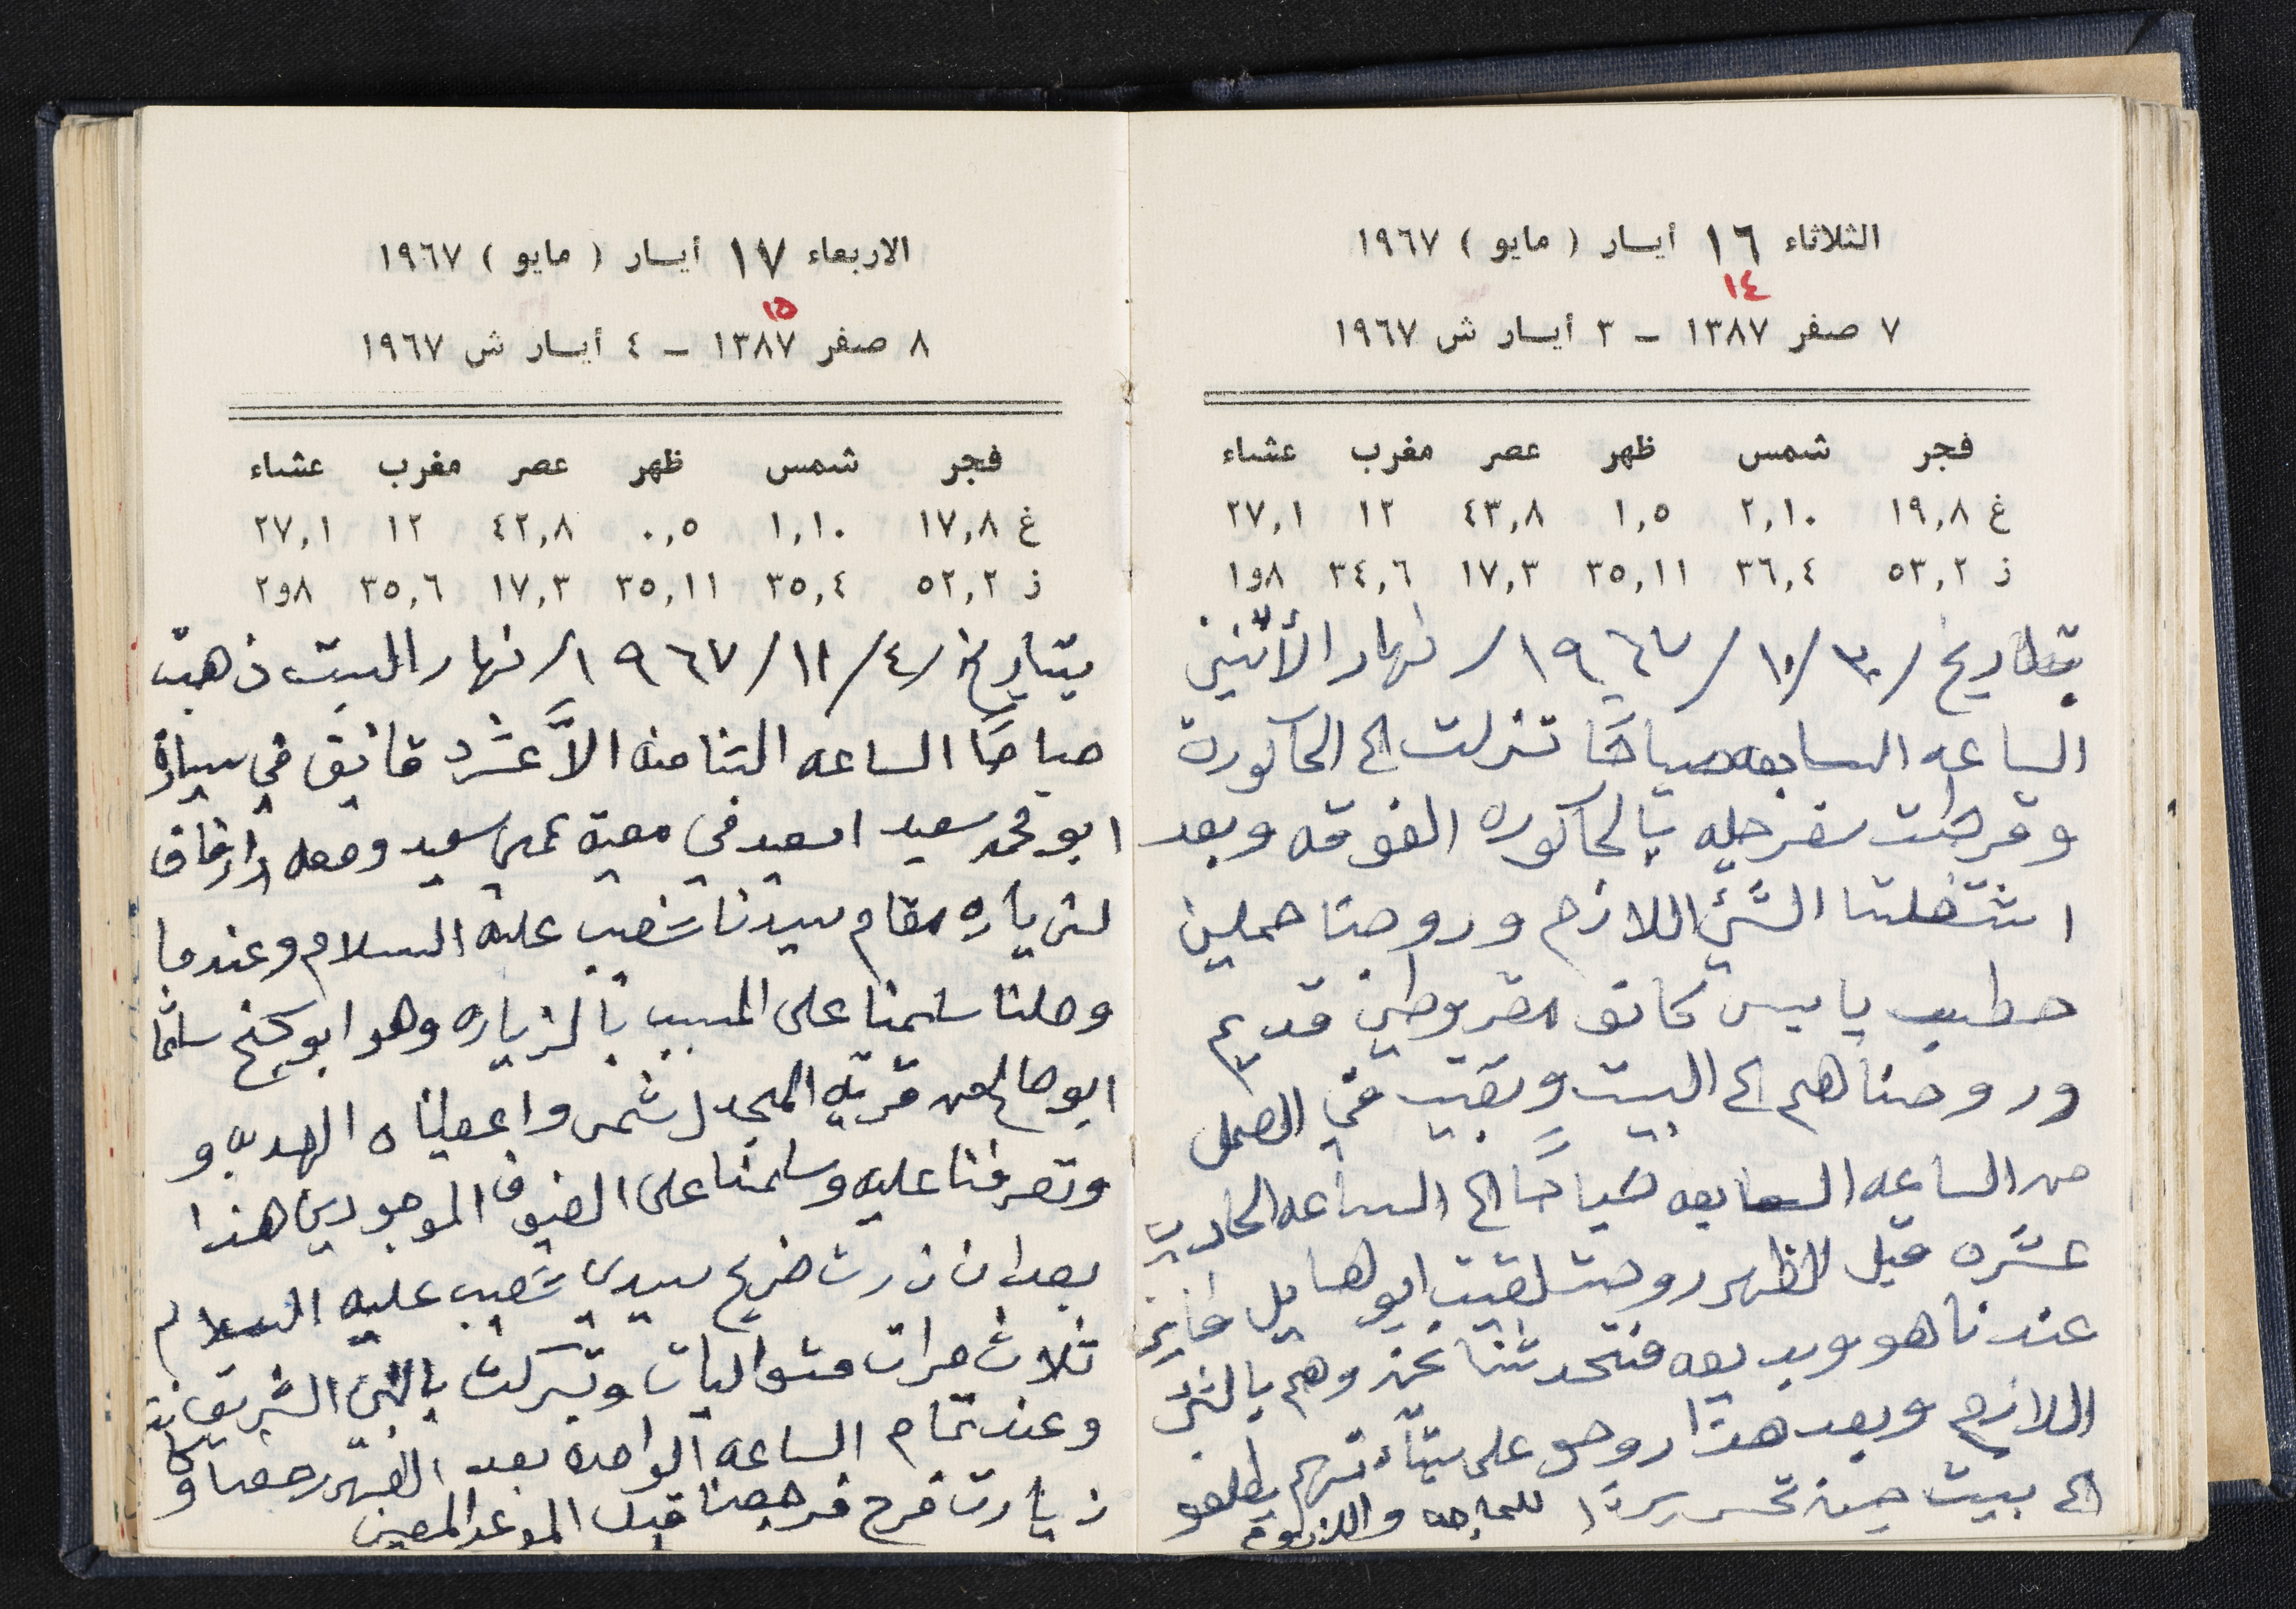 الثلاثاء ١٦ أيسار ( مايو ) ١٩٦٧
١٤
٧ صفر ١٣٨٧ – ٣ أيسار ش ١٩٦٧
فجر شمس ظهر عصر مغرب عشاء
غ ١٩,٨ ٢,١٠ ١,٥ ٤٣,٨ ١٢ ٢٧,١
ز ٥٣,٢ ٣٦,٤ ٣٥,١١ ١٧,٣ ٣٤,٦ ١و٨
بتاريخ /٣٠/١٠/١٩٦٧/ نهار الأثنين
الساعه السابعه صباحًا نزلت الى الحاكورة
وقرطت سفرجله بالحاكوره الفوقه وبعد
اشتغلنا الشيّ اللازم وروحنا حملين
حطب يابس كانو مقروطين قديم
وروحناهم الى البيت وبقيت في العمل
من الساعه السابعه صباحًا الى الساعه الحادية
عشره قبل الظهر روحت لقيت ابو هايل فايز
عندنا هو وبديعه فتحدثنا نحن وهم بالشيّ
اللازم وبعد هذا روحو على يطلعو
الى بيت جن تحريرًا للمراجعه واللزوم
الاربعاء ١٧ أيسار ( مايو ) ١٩٦٧
١٥
٨ صفر ١٣٨٧ – ٤ أيسار ش ١٩٦٧
فجر شمس ظهر عصر مغرب عشاء
غ ١٧,٨ ١,١٠ ٠,٥ ٤٢,٨ ١٢ ٢٧,١
ز ٥٢,٢ ٣٥,٤ ٣٥,١١ ١٧,٣ ٣٥,٦ ٢و٨
بتاريخ /٤/١١/١٩٦٧/ نهار السبت ذهبت
صباحًا الساعه الثامنه الاَّ عشر دقائق في سيارة
ابو محمد سعيد اسعيد في معية عمي سعيد ومعه
لزياره مقام سيدنا شعيب عليه السلام وعندما
وصلنا سلمنا على المسبب بالزياره وهو ابو كنج سلمان
ابو صالح من قرية المجدل شمس واعطيناه الهديه و
وتعرفنا عليه وسلمنا على الضيوف الموجودين هذا
بعد ان زرت ضريح سيدي شعيب عليه السلام
ثلاث مرات متواليات وتبركت بالنبي الشريف
وعند تمام الساعه الواحده بعد الظهر رجعنا وكانة
زيارت فرح فرجعنا قبل الموعد المعين